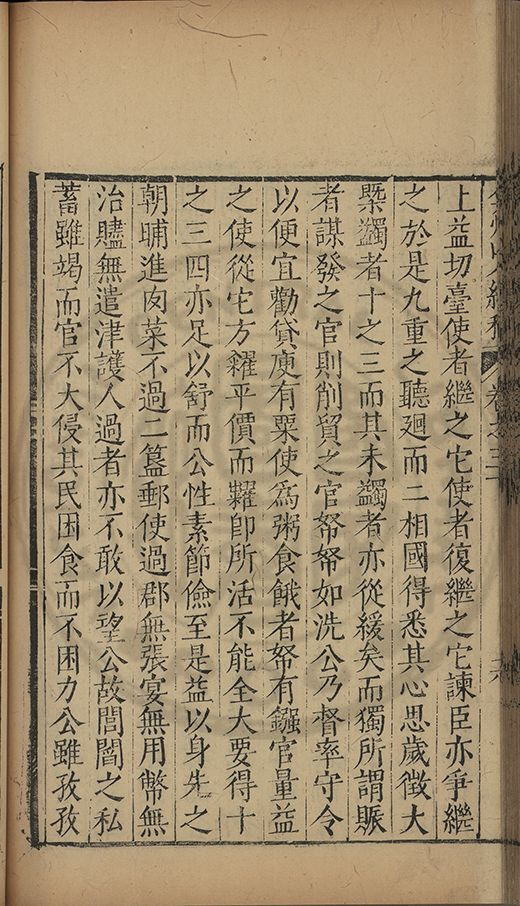 上益切臺使者繼之它使者復繼之它諫臣亦爭繼
之於是九重之聽迴而二相國得悉其心思歲徵大
槩蠲者十之三而其未蠲者亦從緩矣而獨所謂賑
者謀發之官則削貿之官帑帑如洗公乃督率守令
以便宜勸貸庾有粟使為粥食餓者帑有鏹官量益
之使從它方糴平價而糶卽所活不能全大要得十
之三四亦足以舒而公性素節儉至是益以身先之
朝晡進肉菜不過二簋郵使過郡無張宴無用幣無
治贐無遣津護人過者亦不敢以望公故閭閻之私
蓄雖竭而官不大侵其民困食而不困力公雖孜孜